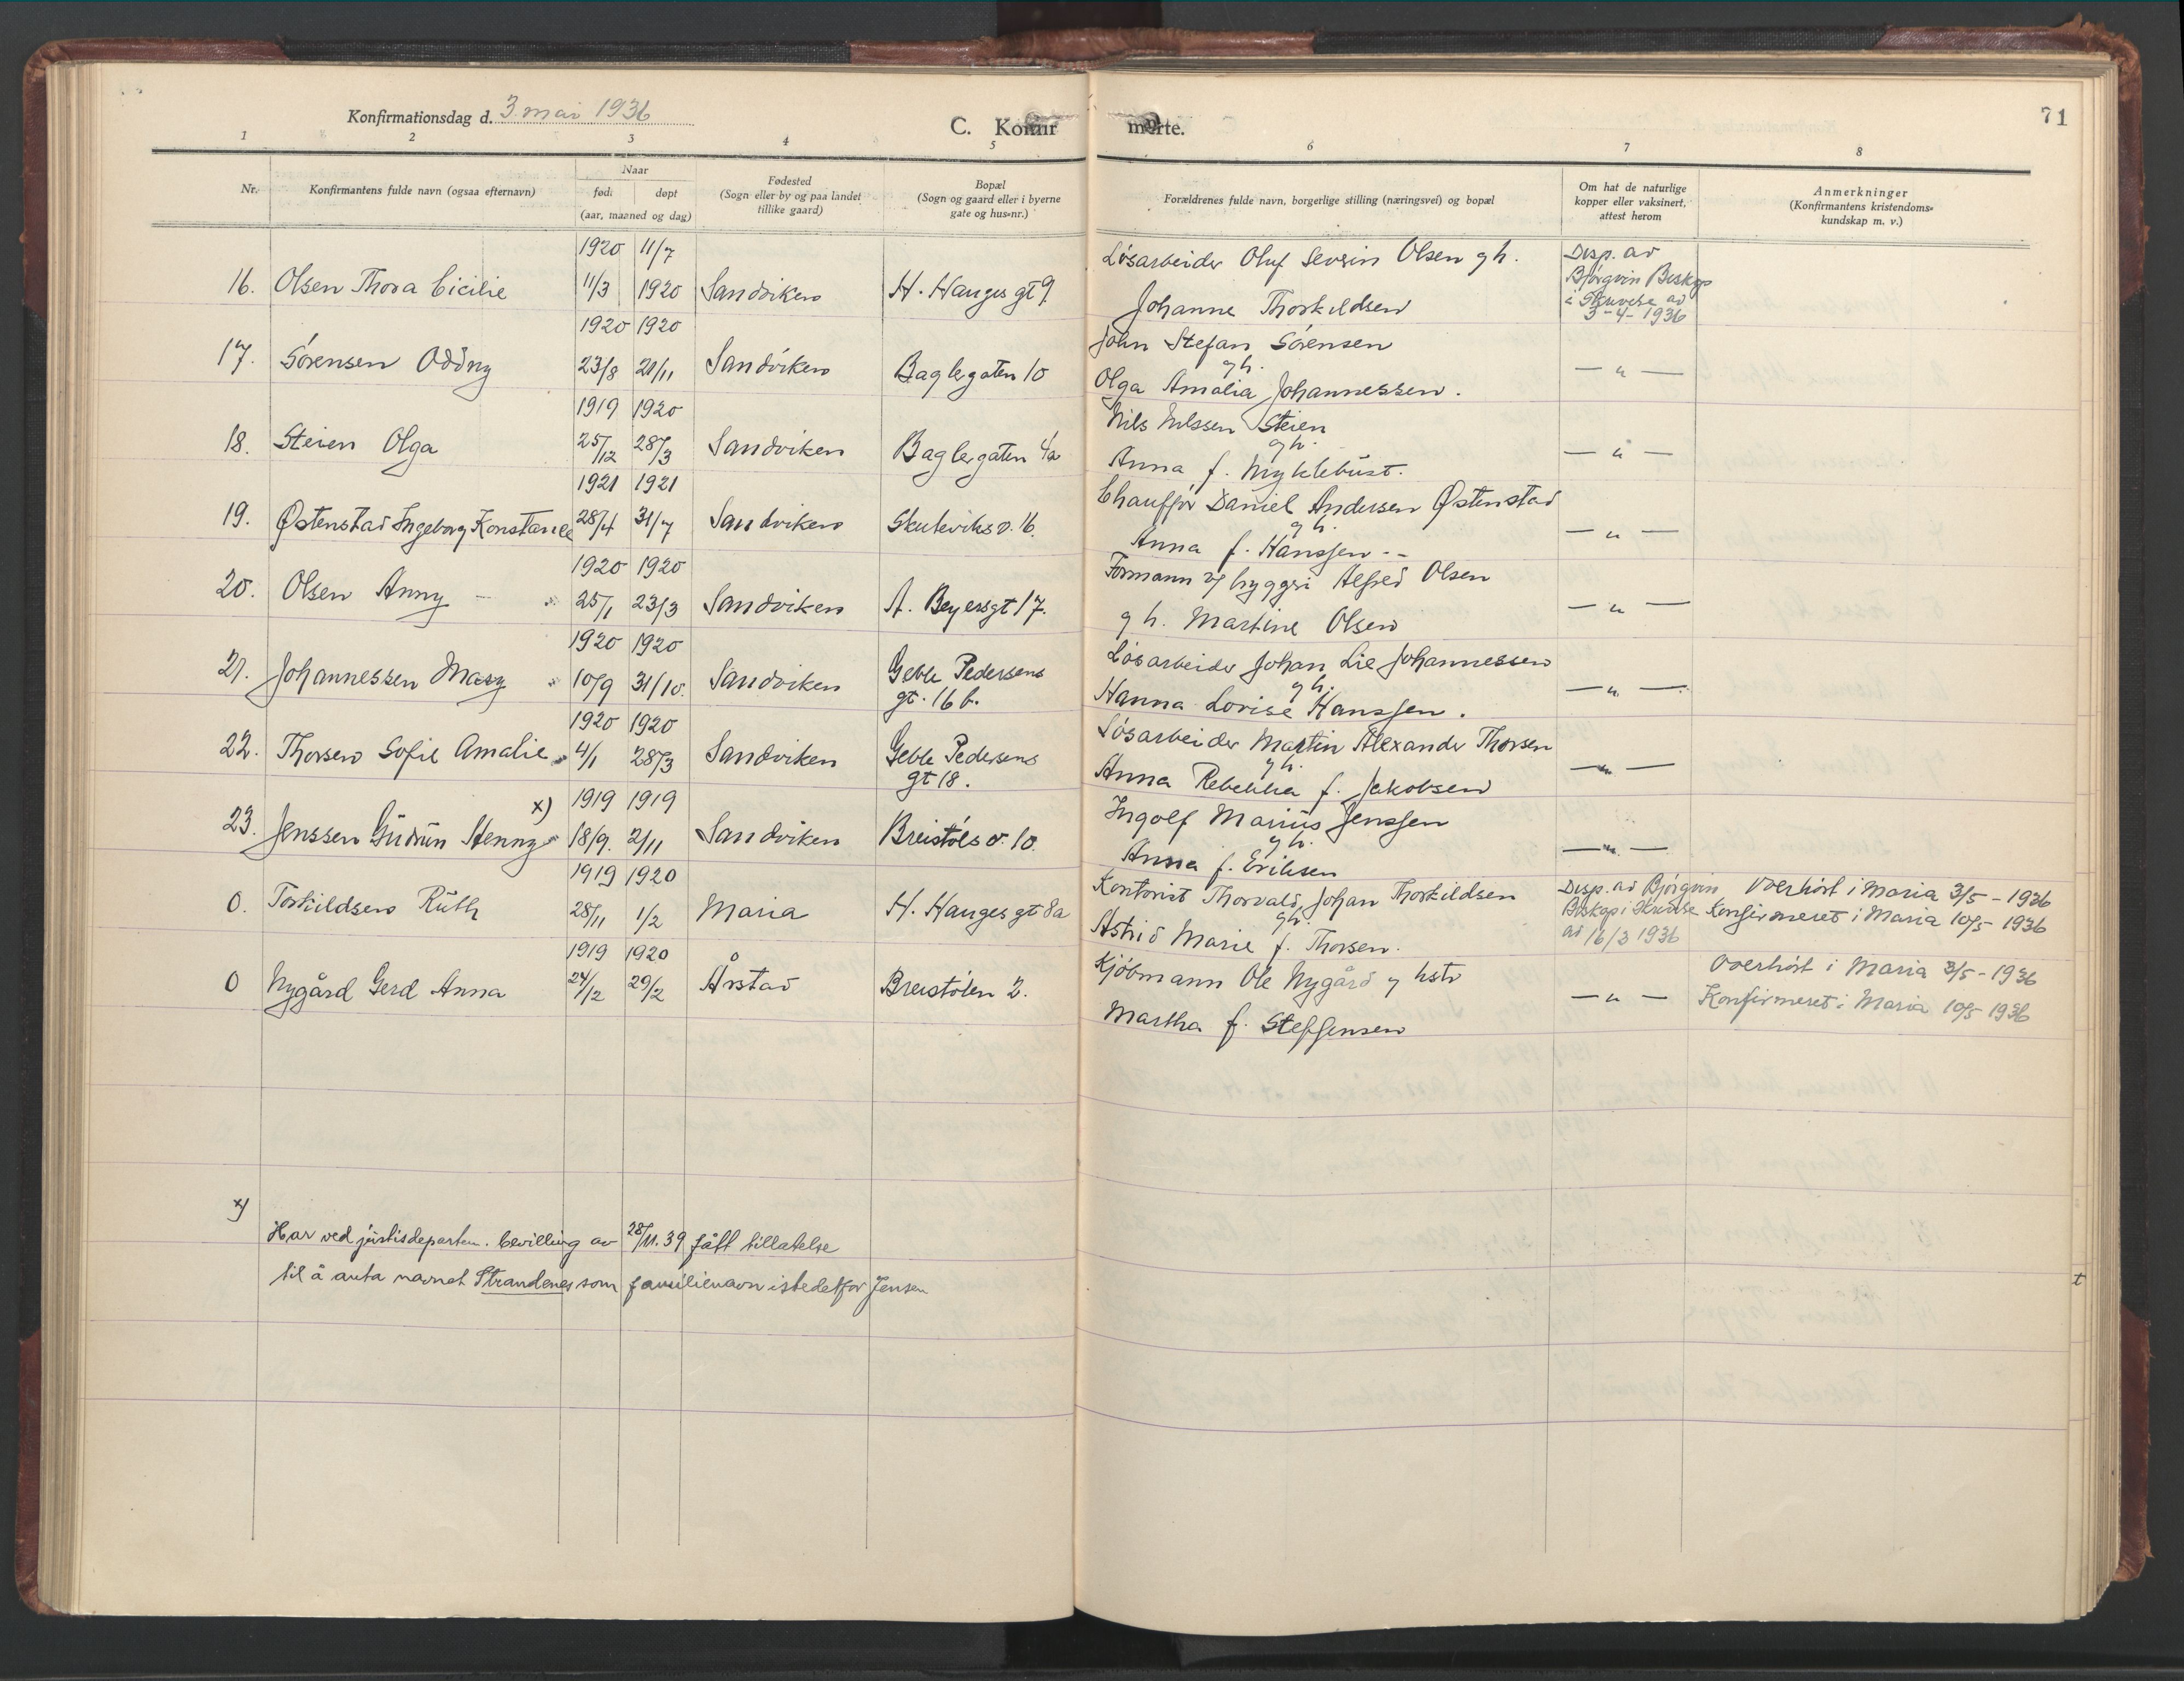 71
Konfirmationsdag d. 3 mai 1936
C. Konfirmerte.
1 2 3 4 5 6 7 8
Nr.
Konfirmantens fulde navn (ogsaa efternavn)
Naar
født døpt
(aar, maaned og dag)
Fødested
(Sogn eller by og paa landet
tillike gaard)
Bopæl
(Sogn og gaard eller i byerne
gate og hus-nr.)
Forældrenes fulde navn, borgerlige stilling (næringsvei) og bopæl
Om hat de naturlige
kopper eller vaksinert,
attest herom
Anmerkninger
(Konfirmantens kristendoms-
kundskap m. v.)
1920 11/7 Løsarbeider Oluf Severin Olsen g h. Disp. av
Bjørgvin Biskop
16. Olsen Thora Cicilie 11/3 1920 Sandviken H. Hauges gt 9. Johanne Thorkildsen i Skrivelse av
3-4-1936
1920 1920 John Stefan Sørensen
g h.
17. Sørensen Oddny 23/8 21/11 Sandviken Baglergaten 10 Olga Amalia Johannessen. — " —
1919 1920 Nils Nilssen Steien
g h.
18. Steien Olga 25/12 28/3 Sandviken Baglergaten 4a Anna f. Myklebust. — " —
1921 1921 Chauffør Daniel Andersen Østenstad
g h.
19. Østenstad Ingeborg Konstance 28/4 31/7 Sandviken Skuteviksv. 16. Anna f. Hanssen -- — " —
1920 1920 Formann v/ bryggeri Alfred Olsen
20. Olsen Anny - 25/1 23/3 Sandviken A. Beyersgt 17. g h. Martine Olsen — " —
1920 1920 Løsarbeider Johan Lie Johannessen
g h.
21. Johannessen Mary 10/9 31/10. Sandviken Geble Pedersens
gt. 16 b. Hanna Lovise Hanssen. — " —
1920 1920 Løsarbeider Martin Alexander Thorsen
g h.
22. Thorsen Sofie Amalie 4/1 28/3 Sandviken Geble Pedersens
gt 18. Anna Rebekka f. Jakobsen — " —
x) 1919 1919 Ingolf Marius Jenssen
g h.
23. Jenssen Gudrun Henny 18/9. 2/11 Sandviken Breistøls v. 10. Anna f. Eriksen — " —
1919 1920 Kontorist Thorvald Johan Thorkildsen Disp. av Bjørgvin Overhørt i Maria 3/5 - 1936
g h.
0. Torkildsen Ruth 28/11 1/2 Maria H. Hauges gt 8a Astrid Marie f. Thorsen. Biskop i Skrivelse Konfirmeret i Maria 10/5 - 1936
av 16/3 1936
1919 1920 Kjøbmann Ole Nygård g hstr Overhørt i Maria 3/5 - 1936
0 Nygård Gerd Anna 24/12 29/2 Årstad Breistølen 2. Martha f. Steffensen — " — Konfirmeret i Maria 10/5 1936
x)
Har ved justisdepartem. bevilling av 28/11.39 fått tillatelse
til å anta navnet Strandenes som familienavn istedetfor Jensen
t